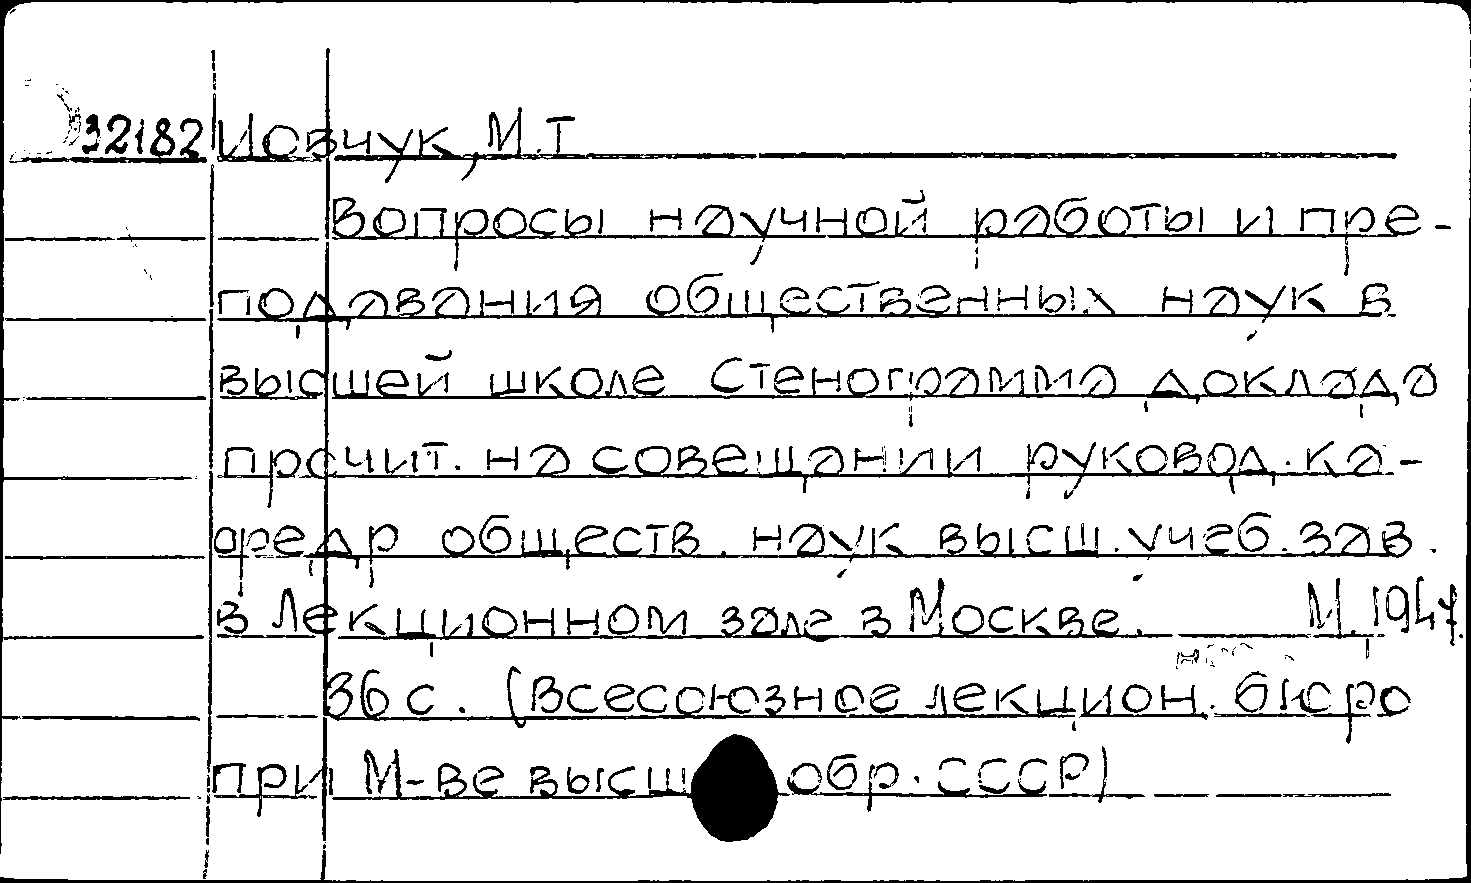 32182 Иовчук, М.Т
Вопросы научной работы и пре-
подавания общественных наук в
высшей школе Стенограмма доклада
прочит. на совещании руковод. ка-
федр обществ. наук высш. учеб. зав.
в Лекционном зале в Москве. М. 1947.
36 с. (Всесоюзное лекцион. бюро
при М-ве высш обр. СССР)